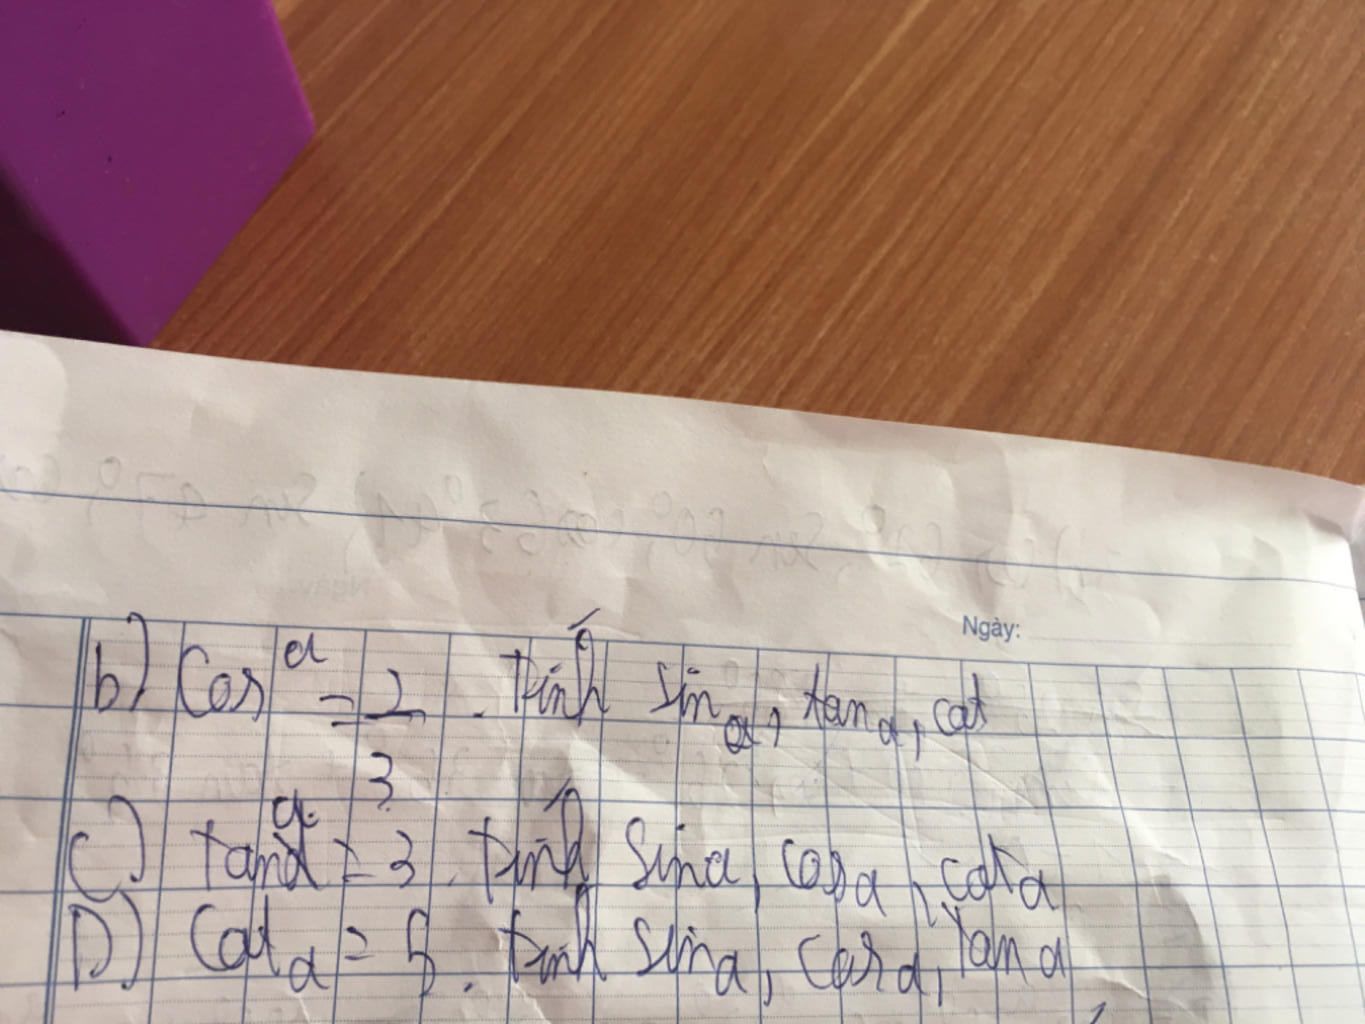 Ngày:
b) Cos α = 2/3 . tính sin α, tan α, cot
C) tan α = 3 . tính sin α, cos α, cot α
D) Cot α = 5 . tính sin α, cos α, tan α